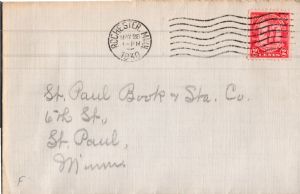 ROCHESTER, MINN.
MAY 28
1 PM
1930
2 CENTS 2
St. Paul Book & Sta. Co.
6th St.,
St. Paul,
Minn.
F